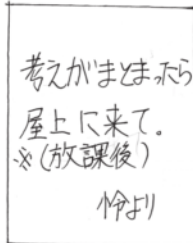 考えがまとまったら
屋上に来て。
※(放課後)
怜より